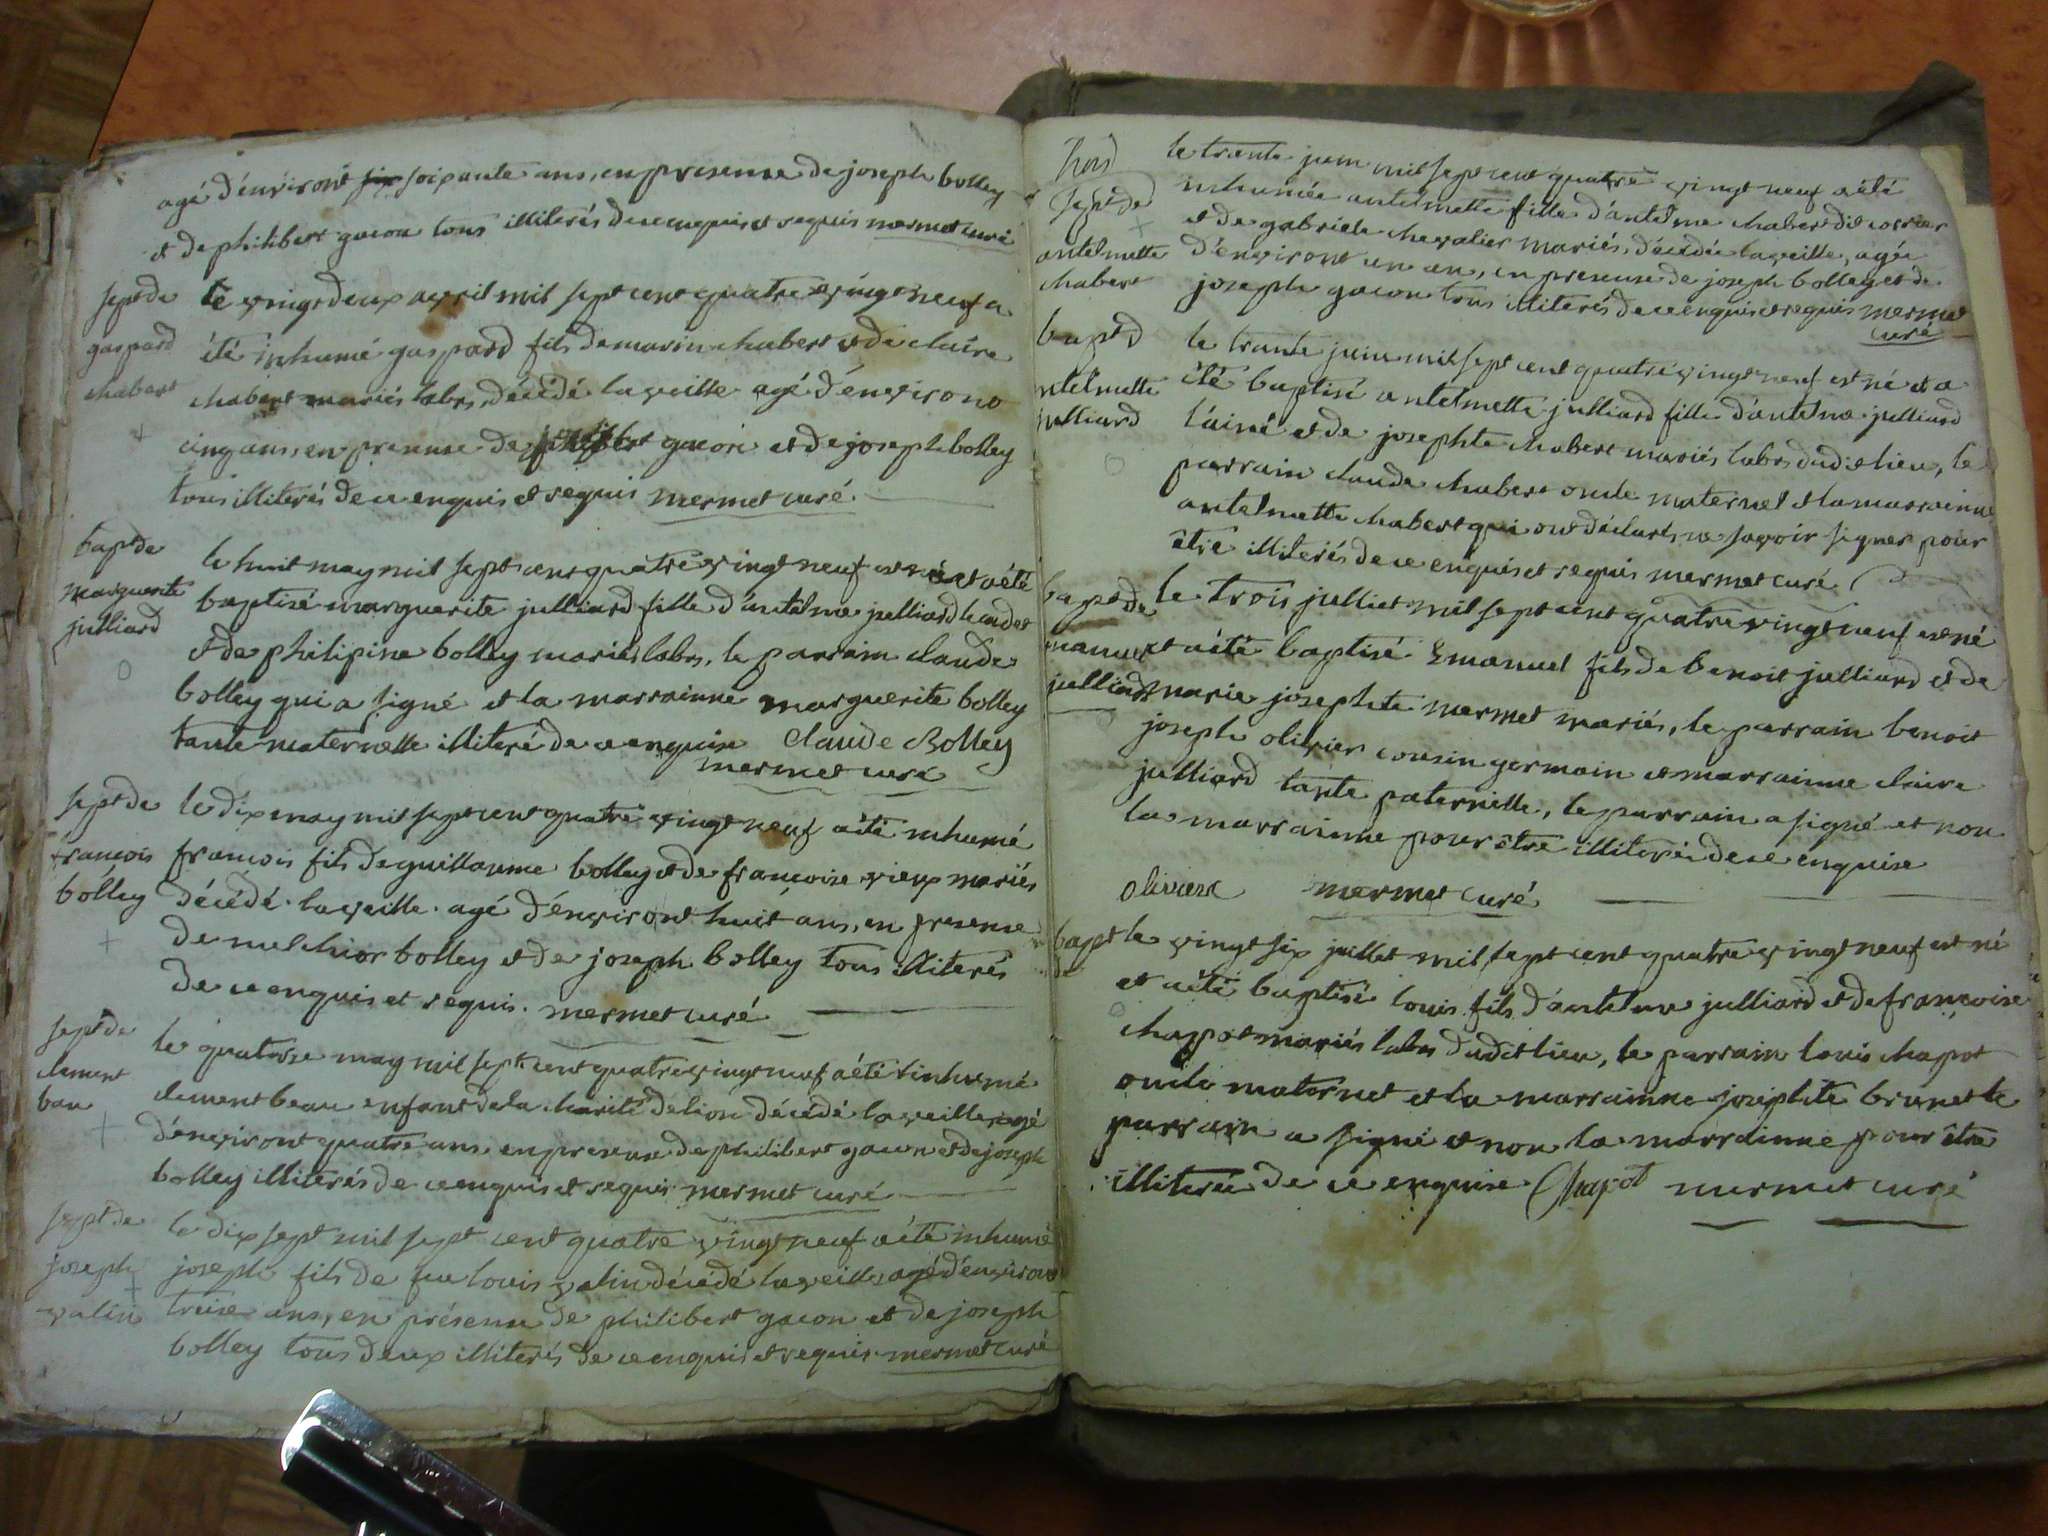 agé d'environt six soixante ans, en presense de joseph bolley
et de philibert gacon tous illiterés de ce enquis et requis mermet curé
sept de
gaspard
chabert
le vingt deux avril mil sept cent quatre vingt neuf a
été inhumé gaspard fils de marin chabert et de claire
chabert mariés labrs, décédé la veille agé d'environ
cinq ans, en presense de gacon et de joseph bolley
tous illiterés de ce enquis et requis mermet curé
bapt de
marguerite
julliard
le huit may mil sept cent quatre vingt neuf est né et a été
baptisé marguerite julliard fille d'antelme julliard le cadet
et de philipine bolley mariés labrs, le parrain claude
bolley qui a signé et la marrainne marguerite bolley
tante maternelle illiteré de ce enquise Claude Bolley
mermet curé
sept de
francois
bolley
le dix may mil sept cent quatre vingt neuf a été inhumé
francois fils de guillaume bolley et de francoise vieux mariés
décédé la veille agé d'environt huit ans, en presense
de melchior bolley et de joseph bolley tous illiterés
de ce enquis et requis. mermet curé
sept de
clement
bau
le quatorse may mil sept cent quatre vingt neuf a été inhumé
clement beau enfant de la charité de lion décédé la veille agé
d'environt quatre ans, en presense de philibert gacon et de joseph
bolley illiterés de ce enquis et requis mermet curé
sept de
joseph
valin
le dix sept mil sept cent quatre vingt neuf a été inhumé
joseph fils de feu louis valin décédé la veille, agé d'environt
treise ans, en présense de philibert gacon et de joseph
bolley tous deux illiterés de ce enquis et requis mermet curé
sept de
antelmette
chabert
le trante juin mil sept cent quatre vingt neuf a été
inhumée antelmette fille d'antelme chabert dit
et de gabriele chevalier mariés, décédée la veille, agée
d'environt un an, en presense de joseph bolley et de
joseph gacon tous illiterés de ce enquis et requis mermet
curé
bapt d
ntelmette
julliard
le trante juin mil sept cent quatre vingt neuf est né et a
été baptisé antelmette julliard fille d'antelme julliard
l'ainé et de josephte chabert mariés labrs dudit lieu, le
parrain claude chabert oncle maternel et la marrainne
antelmette chabert qui ont déclarés ne savoir signer pour
être illiterés de ce enquis et requis mermet curé
bapt de
manuel
julliard
le trois julliet mil sept cent quatre vingt neuf est né
et a été baptisé Emanuel fils de benoit julliard et de
marie josephte mermet mariés, le parrain benoit
joseph olivier cousin germain et marrainne claire
julliard tante paternelle, le parrain a signé et non
la marrainne pour être illiterée de ce enquise
olivier mermet curé
bapt
de
le vingt six juillet mil sept cent quatre vingt neuf est né
et a été baptisé louis fils d'antelme julliard et de francoise
chapot mariés labrs dudit lieu, le parrain louis chapot
oncle maternel et la marrainne josephte brunet le
parrain a signé et non la marrainne pour être
illiterée de ce enquise Chapot mermet curé